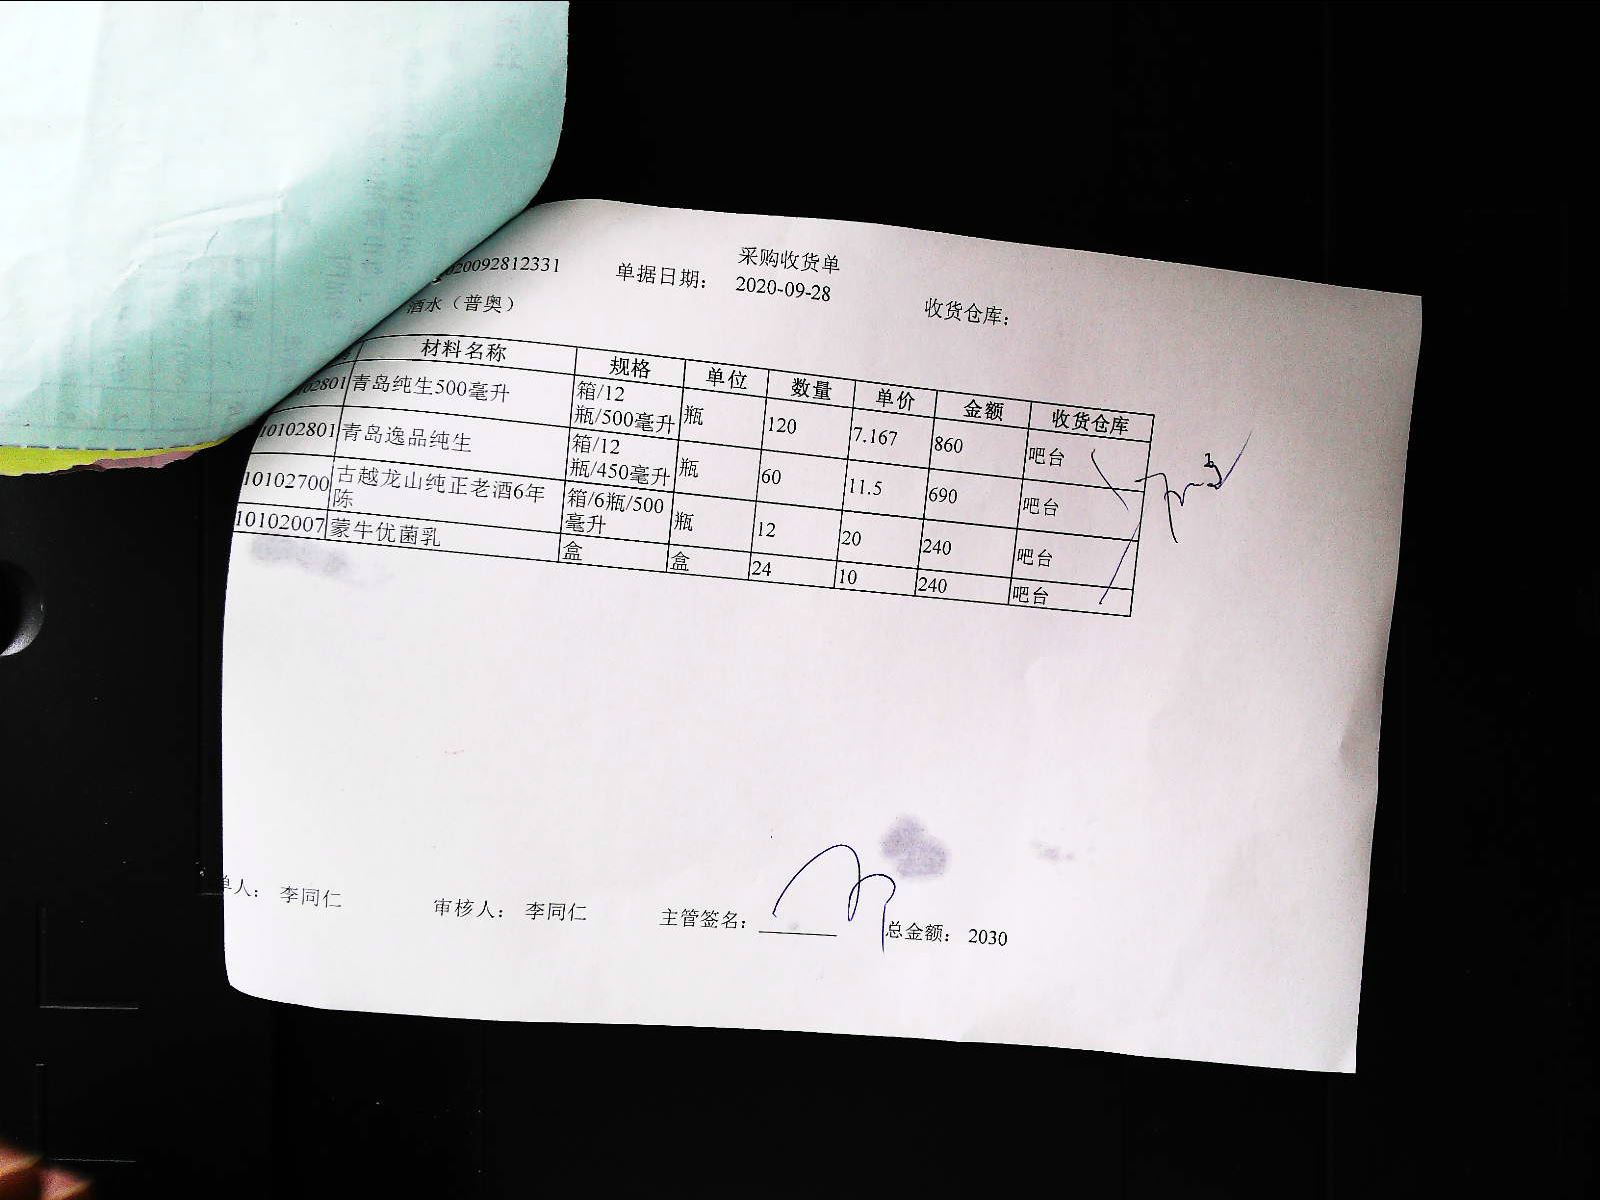 采购收货单
020092812331 单据日期： 2020-09-28 收货仓库：
酒水（普奥）
材料名称 规格 单位 数量 单价 金额 收货仓库
02801 青岛纯生500毫升 箱/12 瓶/500毫升 瓶 120 7.167 860 吧台
10102801 青岛逸品纯生 箱/12 瓶/450毫升 瓶 60 11.5 690 吧台
10102700 古越龙山纯正老酒6年陈 箱/6瓶/500毫升 瓶 12 20 240 吧台
10102007 蒙牛优菌乳 盒 盒 24 10 240 吧台
单人： 李同仁 审核人： 李同仁 主管签名： 总金额： 2030